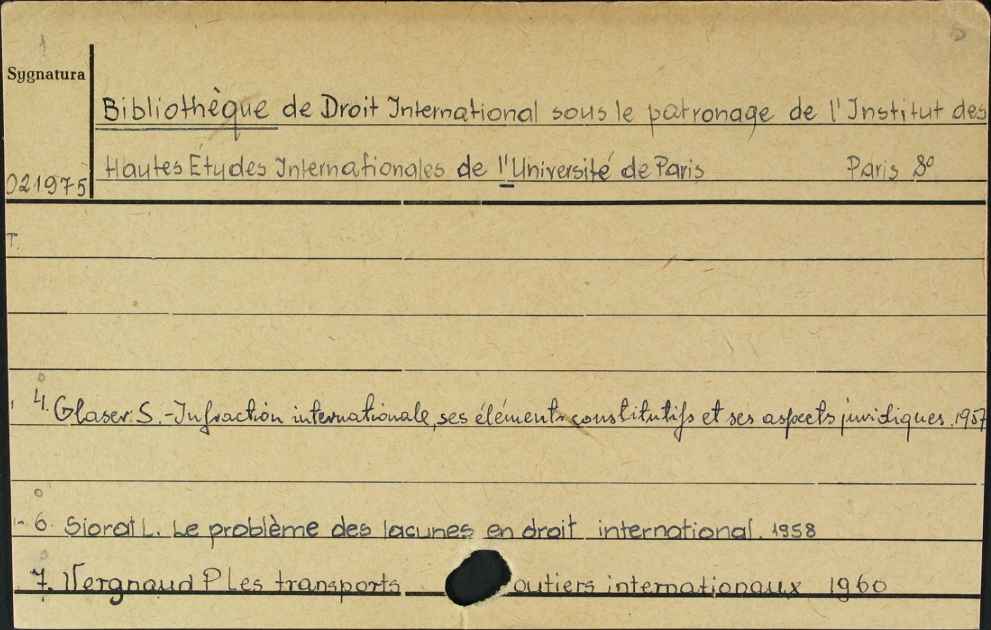 Sygnatura
Bibliothèque de Droit International sous le patronage de l'Institut des
Hautes Études Internationales de l'Université de Paris Paris 8º
021975
T.
4. Glaser S. - Infraction internationale, ses éléments constitutifs et ses aspects juridiques. 1957
6. Siorat L. Le problème des lacunes en droit international. 1958
7. Vergnaud P Les transports outiers internationaux 1960